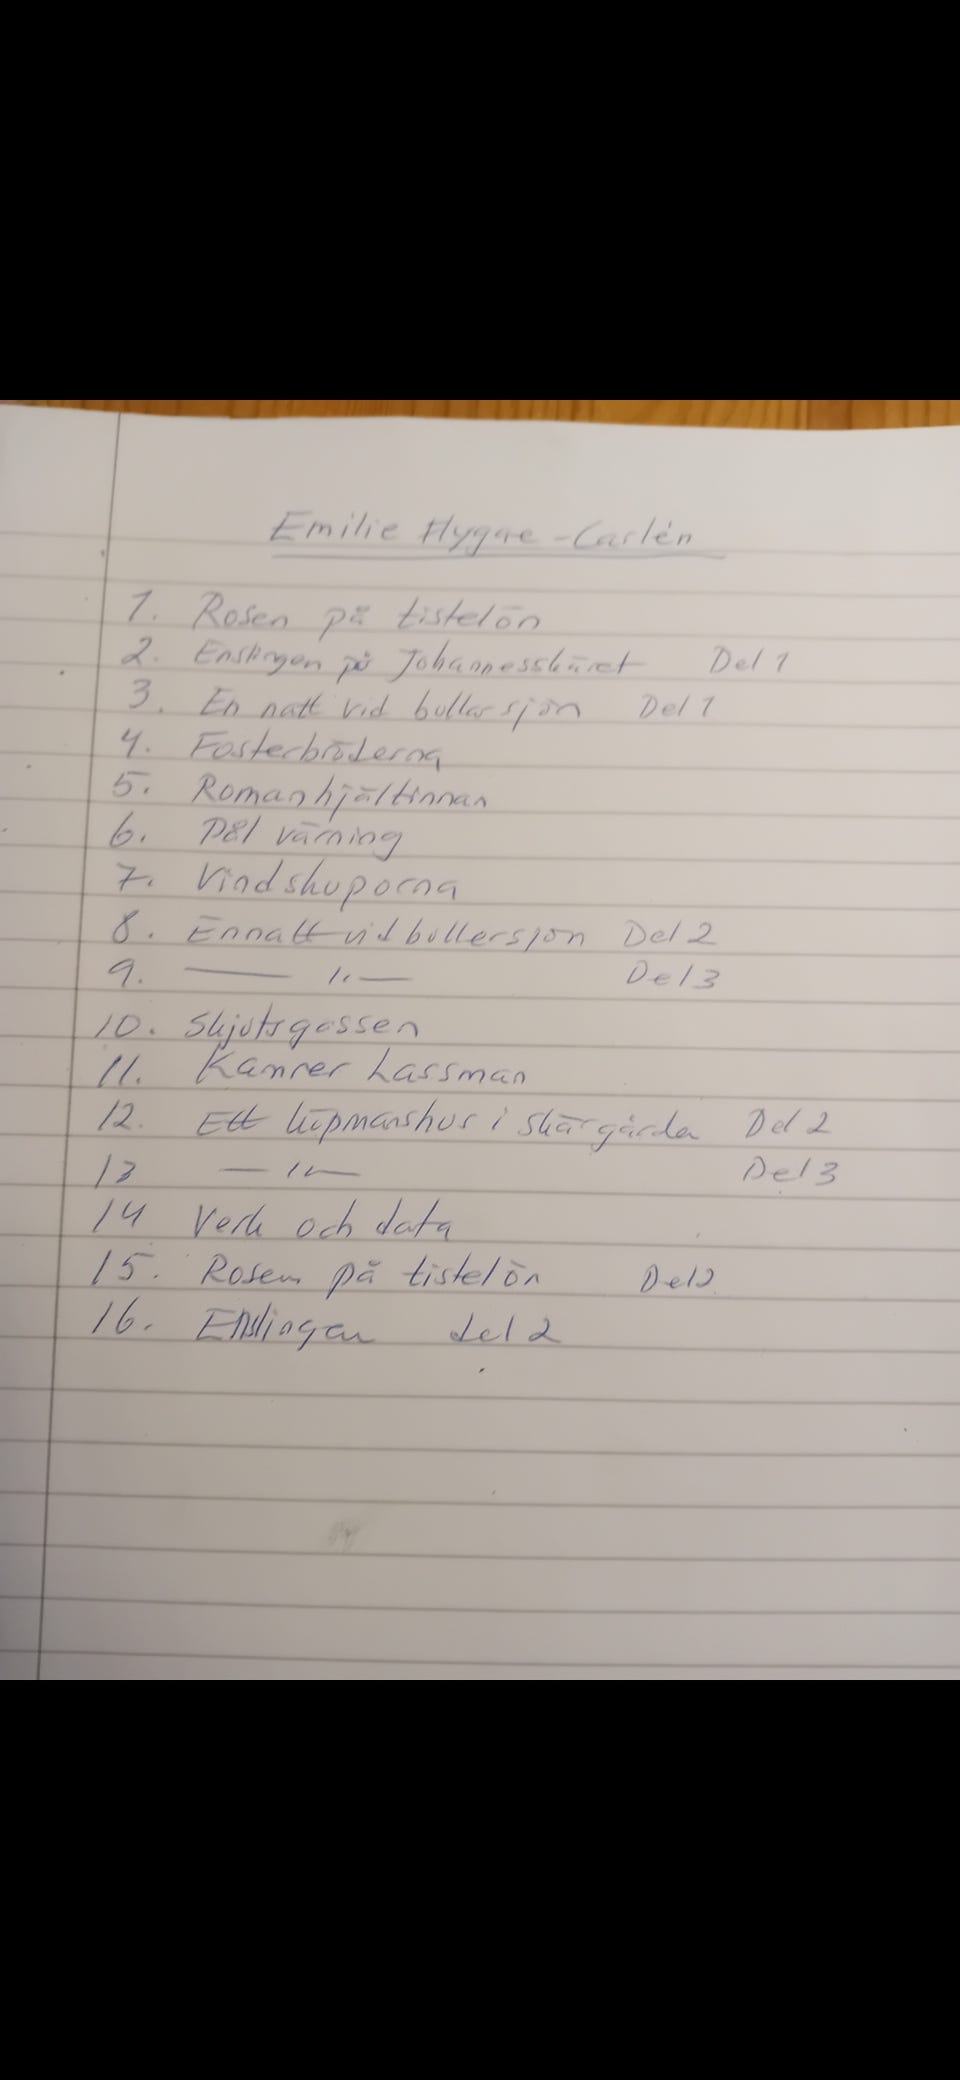 Emilie Flygare-Carlén
1. Rosen på tistelön
2. Enslingen på Johannesskäret Del 1
3. En natt vid bullarsjön Del 1
4. Fosterbröderna
5. Romanhjältinnan
6. Pål värning
7. Vindskuporna
8. En natt vid bullersjön Del 2
9. — 1, — Del 3
10. Skjutsgossen
11. Kamrer Lassman
12. Ett köpmanshus i skärgården Del 2
13 — 11 — Del 3
14 Verk och data
15. Rosen på tistelön Del 2
16. Enslingen del 2